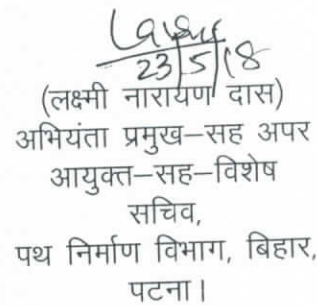 23/5/18
(लक्ष्मी नारायण दास)
अभियंता प्रमुख–सह अपर
आयुक्त–सह–विशेष
सचिव,
पथ निर्माण विभाग, बिहार,
पटना।